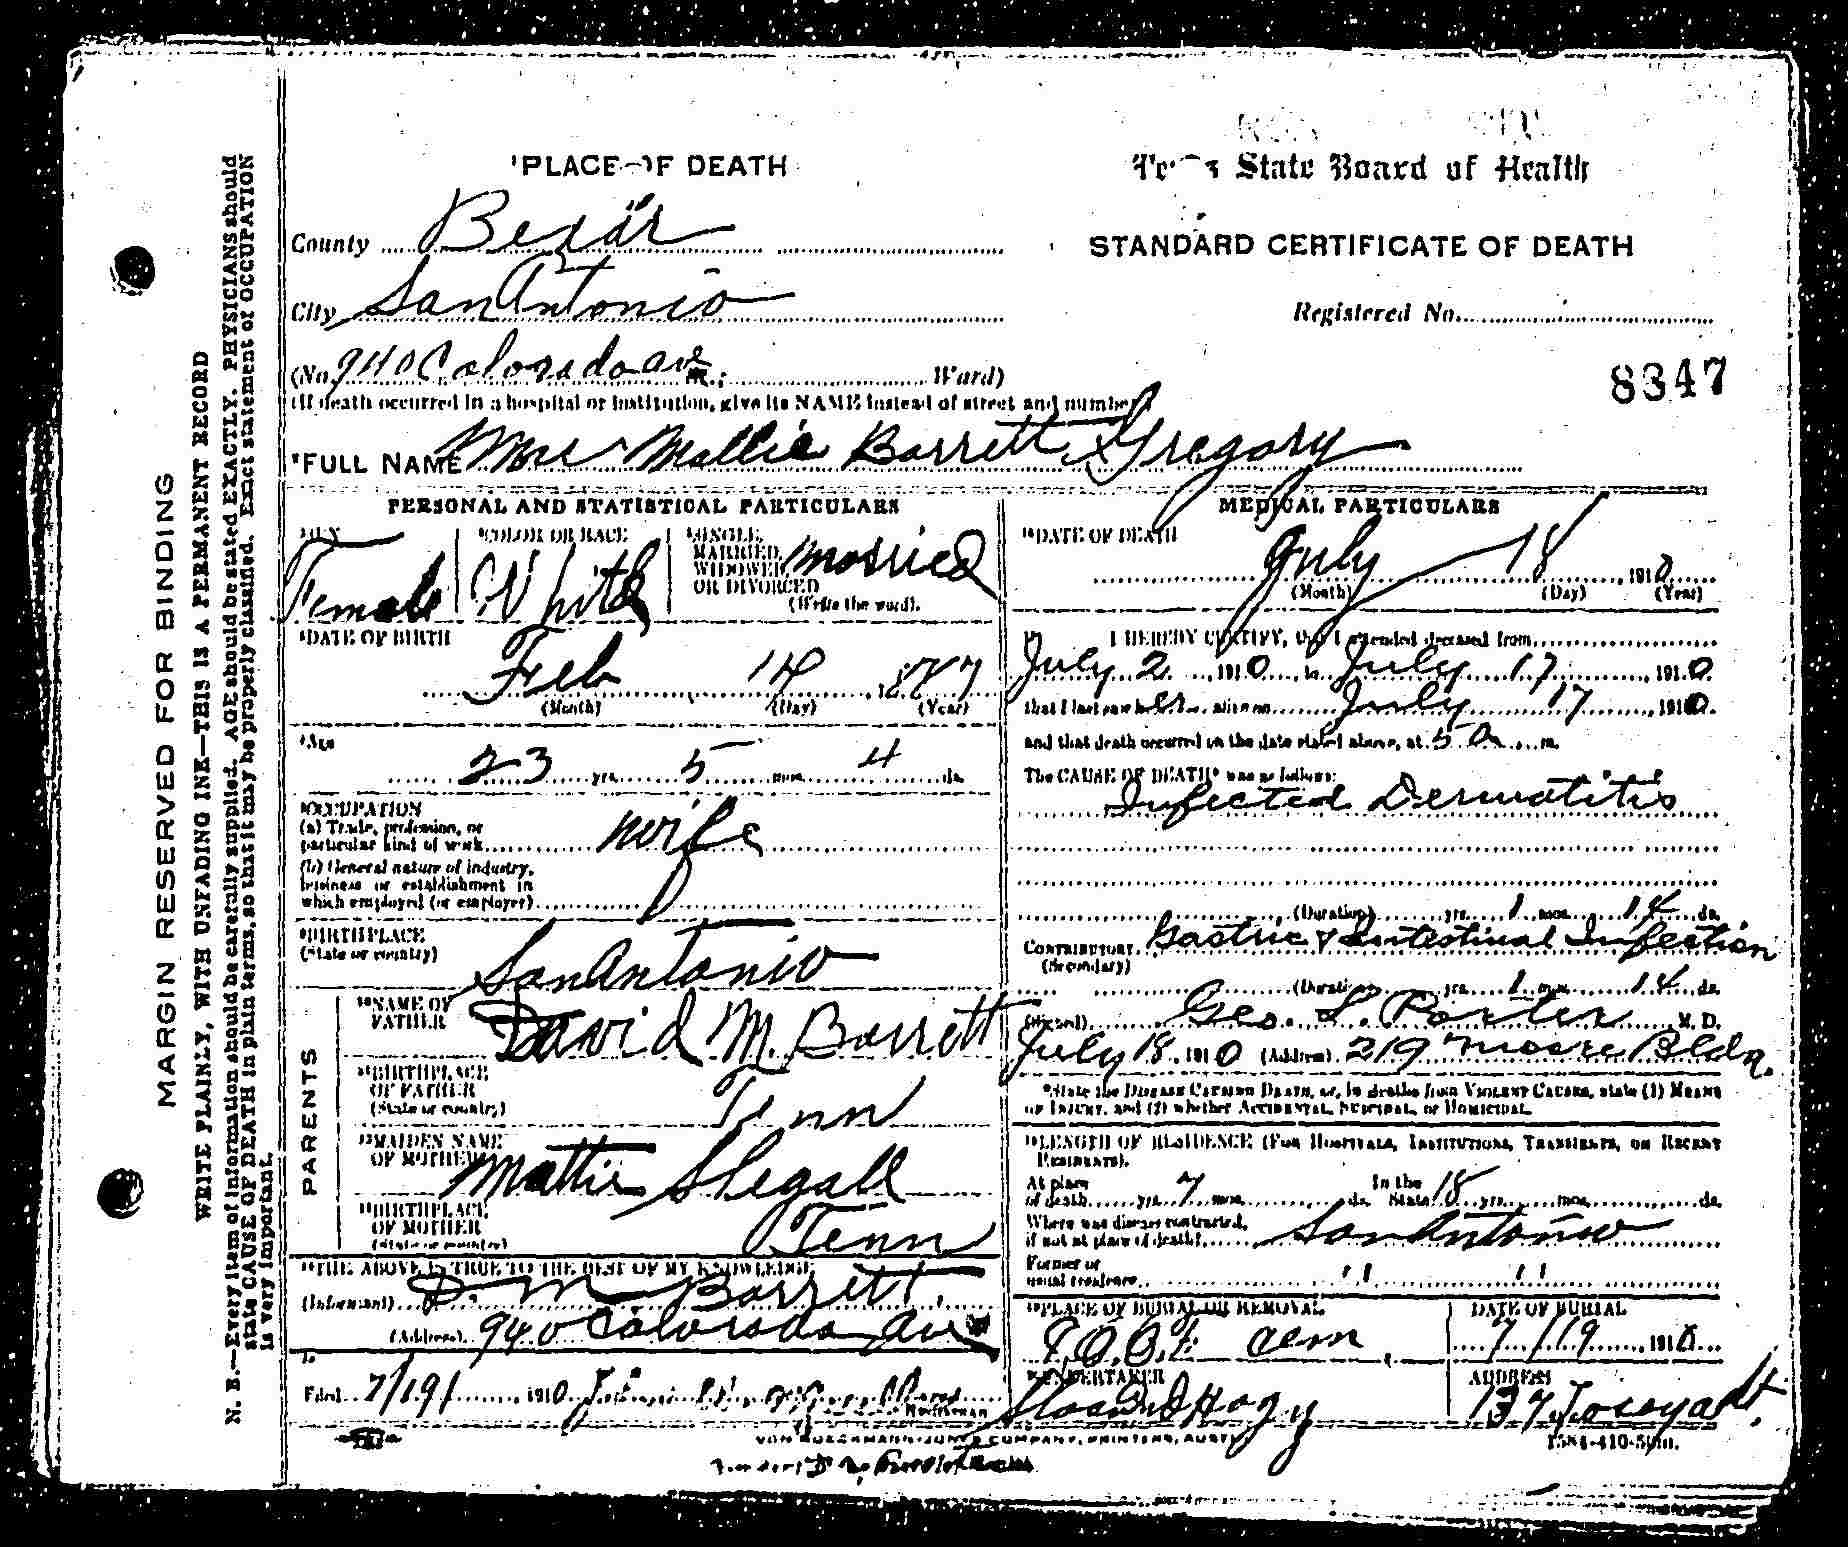 MARGIN RESERVED FOR BINDING
WRITE PLAINLY, WITH UNFADING INK—THIS IS A PERMANENT RECORD
N. B.—Every item of information should be carefully supplied. AGE should be stated EXACTLY. PHYSICIANS should
state CAUSE OF DEATH in plain terms, so that it may be properly classified. Exact statement of OCCUPATION
is very important.
PLACE OF DEATH
Texas State Board of Health
County Bexar
STANDARD CERTIFICATE OF DEATH
City San Antonio
Registered No.
(No. 940 Colorado ave St.; Ward)
8347
(If death occurred in a hospital or institution, give its NAME instead of street and number)
FULL NAME Mrs Mollie Barrett Gregory
PERSONAL AND STATISTICAL PARTICULARS
SEX Female
COLOR OR RACE White
SINGLE, MARRIED, WIDOWED, OR DIVORCED (Write the word). Married
DATE OF BIRTH
Feb 14, 1887
(Month) (Day) (Year)
AGE
23 yrs. 5 mos. 4 ds.
OCCUPATION
(a) Trade, profession, or
particular kind of work wife
(b) General nature of industry,
business or establishment in
which employed (or employer)
BIRTHPLACE
(State or country) San Antonio
PARENTS
NAME OF
FATHER David M. Barrett
BIRTHPLACE
OF FATHER
(State or country) Tenn
MAIDEN NAME
OF MOTHER Mattie Slegall
BIRTHPLACE
OF MOTHER
(State or country) Tenn
THE ABOVE IS TRUE TO THE BEST OF MY KNOWLEDGE
(Informant) D. M Barrett
(Address) 940 Colorado ave
Filed 7/19, 1910
REGISTRAR
MEDICAL PARTICULARS
DATE OF DEATH
July 18, 1910
(Month) (Day) (Year)
I HEREBY CERTIFY, that I attended deceased from
July 2, 1910, to July 17, 1910.
that I last saw her alive on July 17, 1910.
and that death occurred on the date stated above, at 5 a. m.
The CAUSE OF DEATH* was as follows:
Infected Dermatitis
(Duration) yrs. 1 mos. 14 ds.
CONTRIBUTORY Gastric & Intestinal Infection
(Secondary)
(Duration) yrs. 1 mos. 14 ds.
(Signed) Geo. L. Porter M. D.
July 18, 1910 (Address) 219 Moore Bldg.
*State the DISEASE CAUSING DEATH, or, in deaths from VIOLENT CAUSES, state (1) MEANS
OF INJURY, and (2) whether ACCIDENTAL, SUICIDAL, or HOMICIDAL.
LENGTH OF RESIDENCE (FOR HOSPITALS, INSTITUTIONS, TRANSIENTS, OR RECENT
RESIDENTS).
At place
of death yrs. 7 mos. ds. In the State 18 yrs. mos. ds.
Where was disease contracted,
if not at place of death? San Antonio
Former or
usual residence " "
PLACE OF BURIAL OR REMOVAL
I.O.O.F. Cem.
DATE OF BURIAL
7/19, 1910
UNDERTAKER
ADDRESS
137
VON BOECKMANN-JONES COMPANY, PRINTERS, AUSTIN